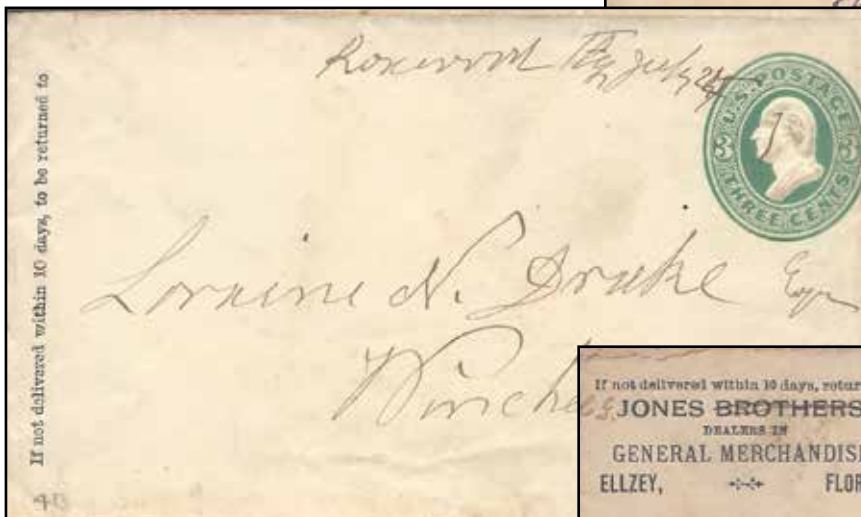 If not delivered within 10 days, to be returned to
July 24
U.S. POSTAGE
3 3
THREE CENTS
Loraine N. Drake Esqr
Winche
If not delivered within 10 days, retur
JONES BROTHERS
DEALERS IN
GENERAL MERCHANDIS
ELLZEY, FLOR